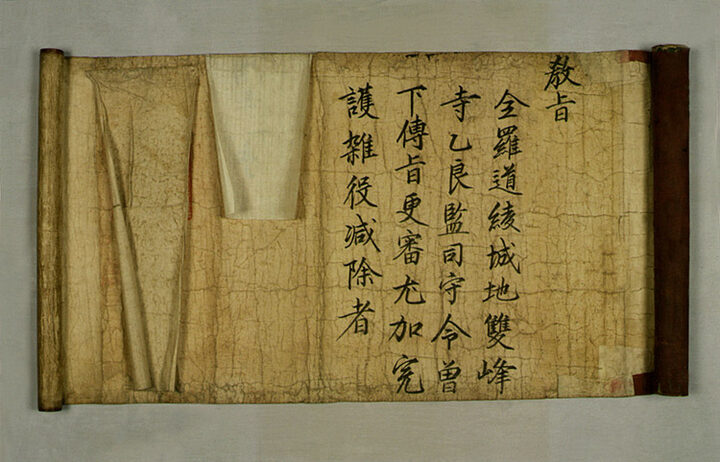 教旨
全羅道綾城地雙峰
寺乙良監司守令曾
下傳旨更審尤加完
護雜役減除者